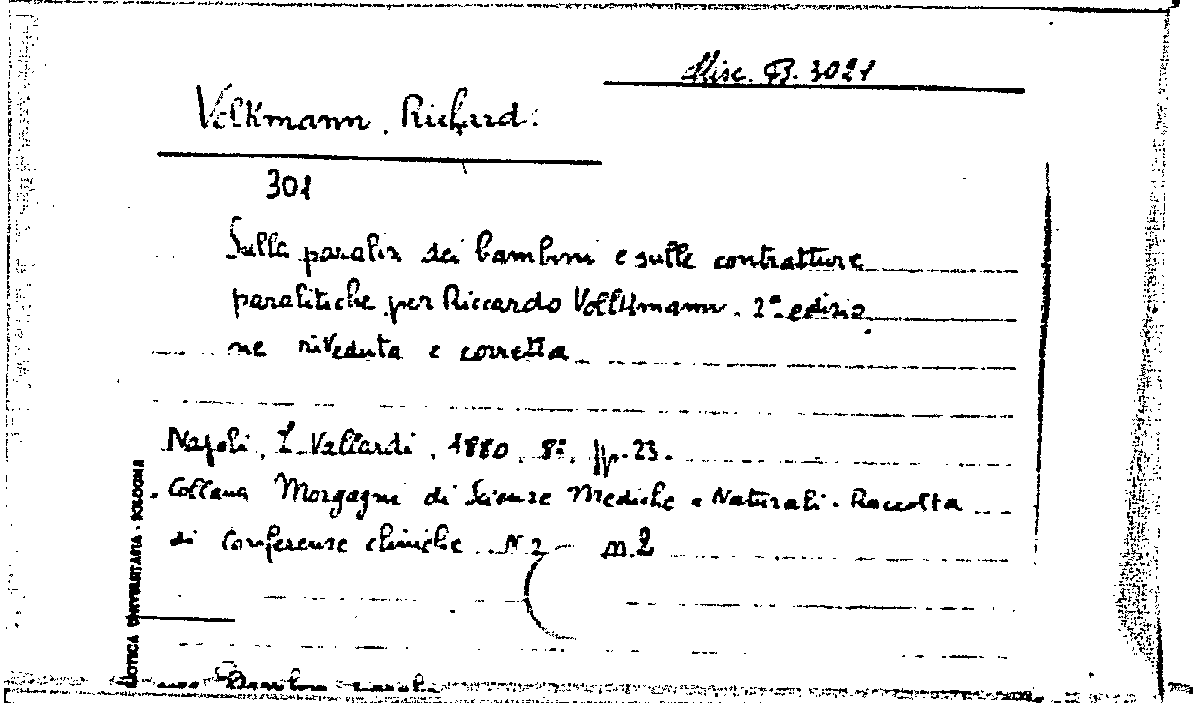 Misc. B. 3021
Volkmann, Richard.
301
Sulla paralisi dei bambini e sulle contratture
paralitiche per Riccardo Vollkmann. 2ª edizio
ne riveduta e corretta
Napoli, L. Vallardi, 1880. 8°. pp. 23.
Collana Morgagni di Scienze Mediche e Naturali. Raccolta
di Conferenze cliniche N. 2 - m. 2
LIOTECA UNIVERSITARIA - BOLOGNA